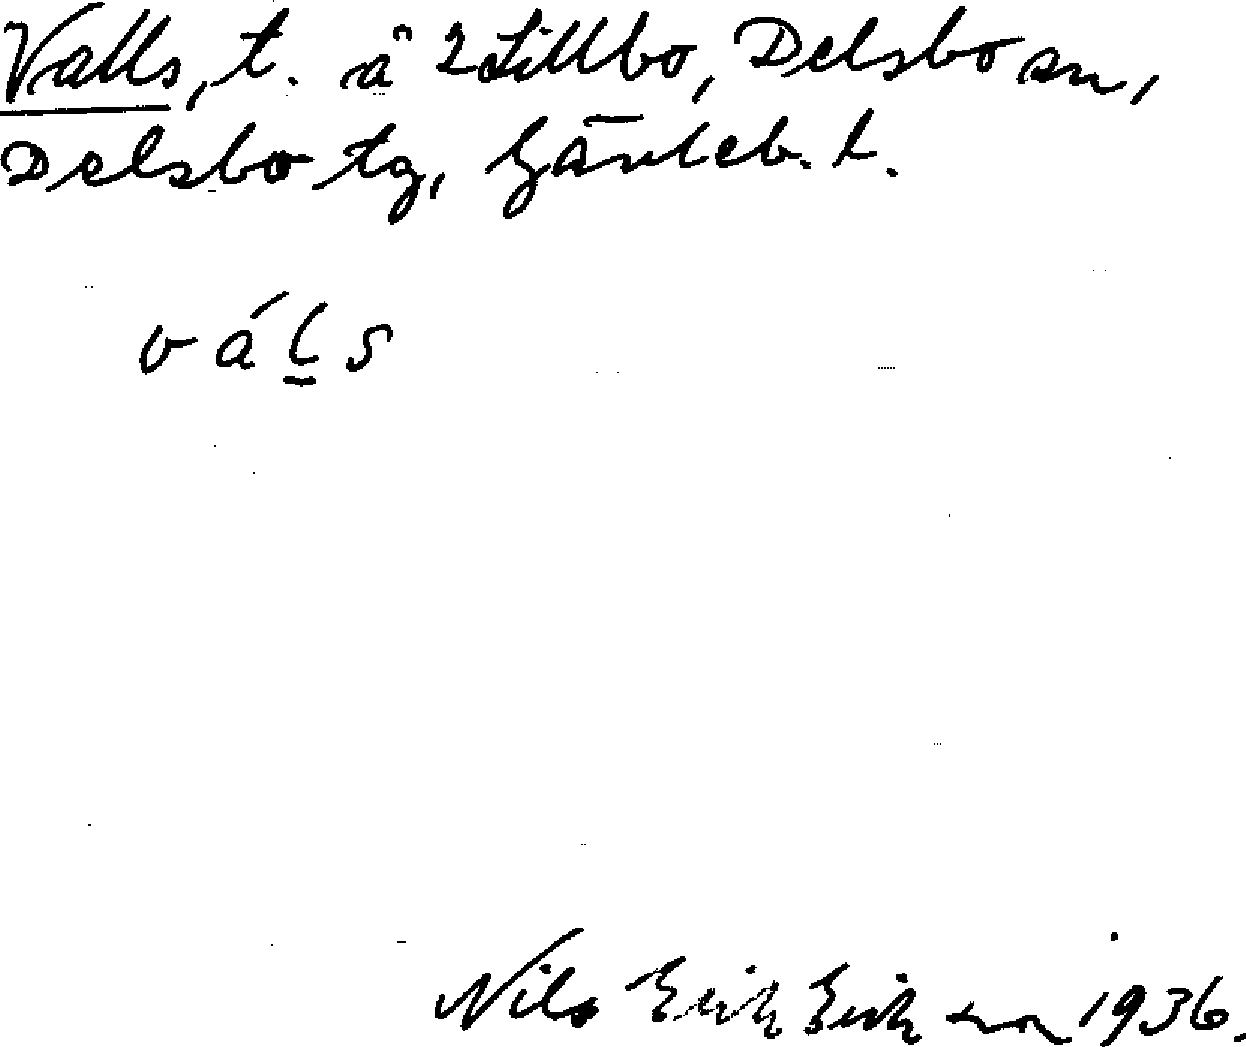 Valls, t. å 2 Lillbo, Delsbo sn,
Delsbo tg, Gävleb. l.
váḻs
Nils Erik Eriksson 1936.